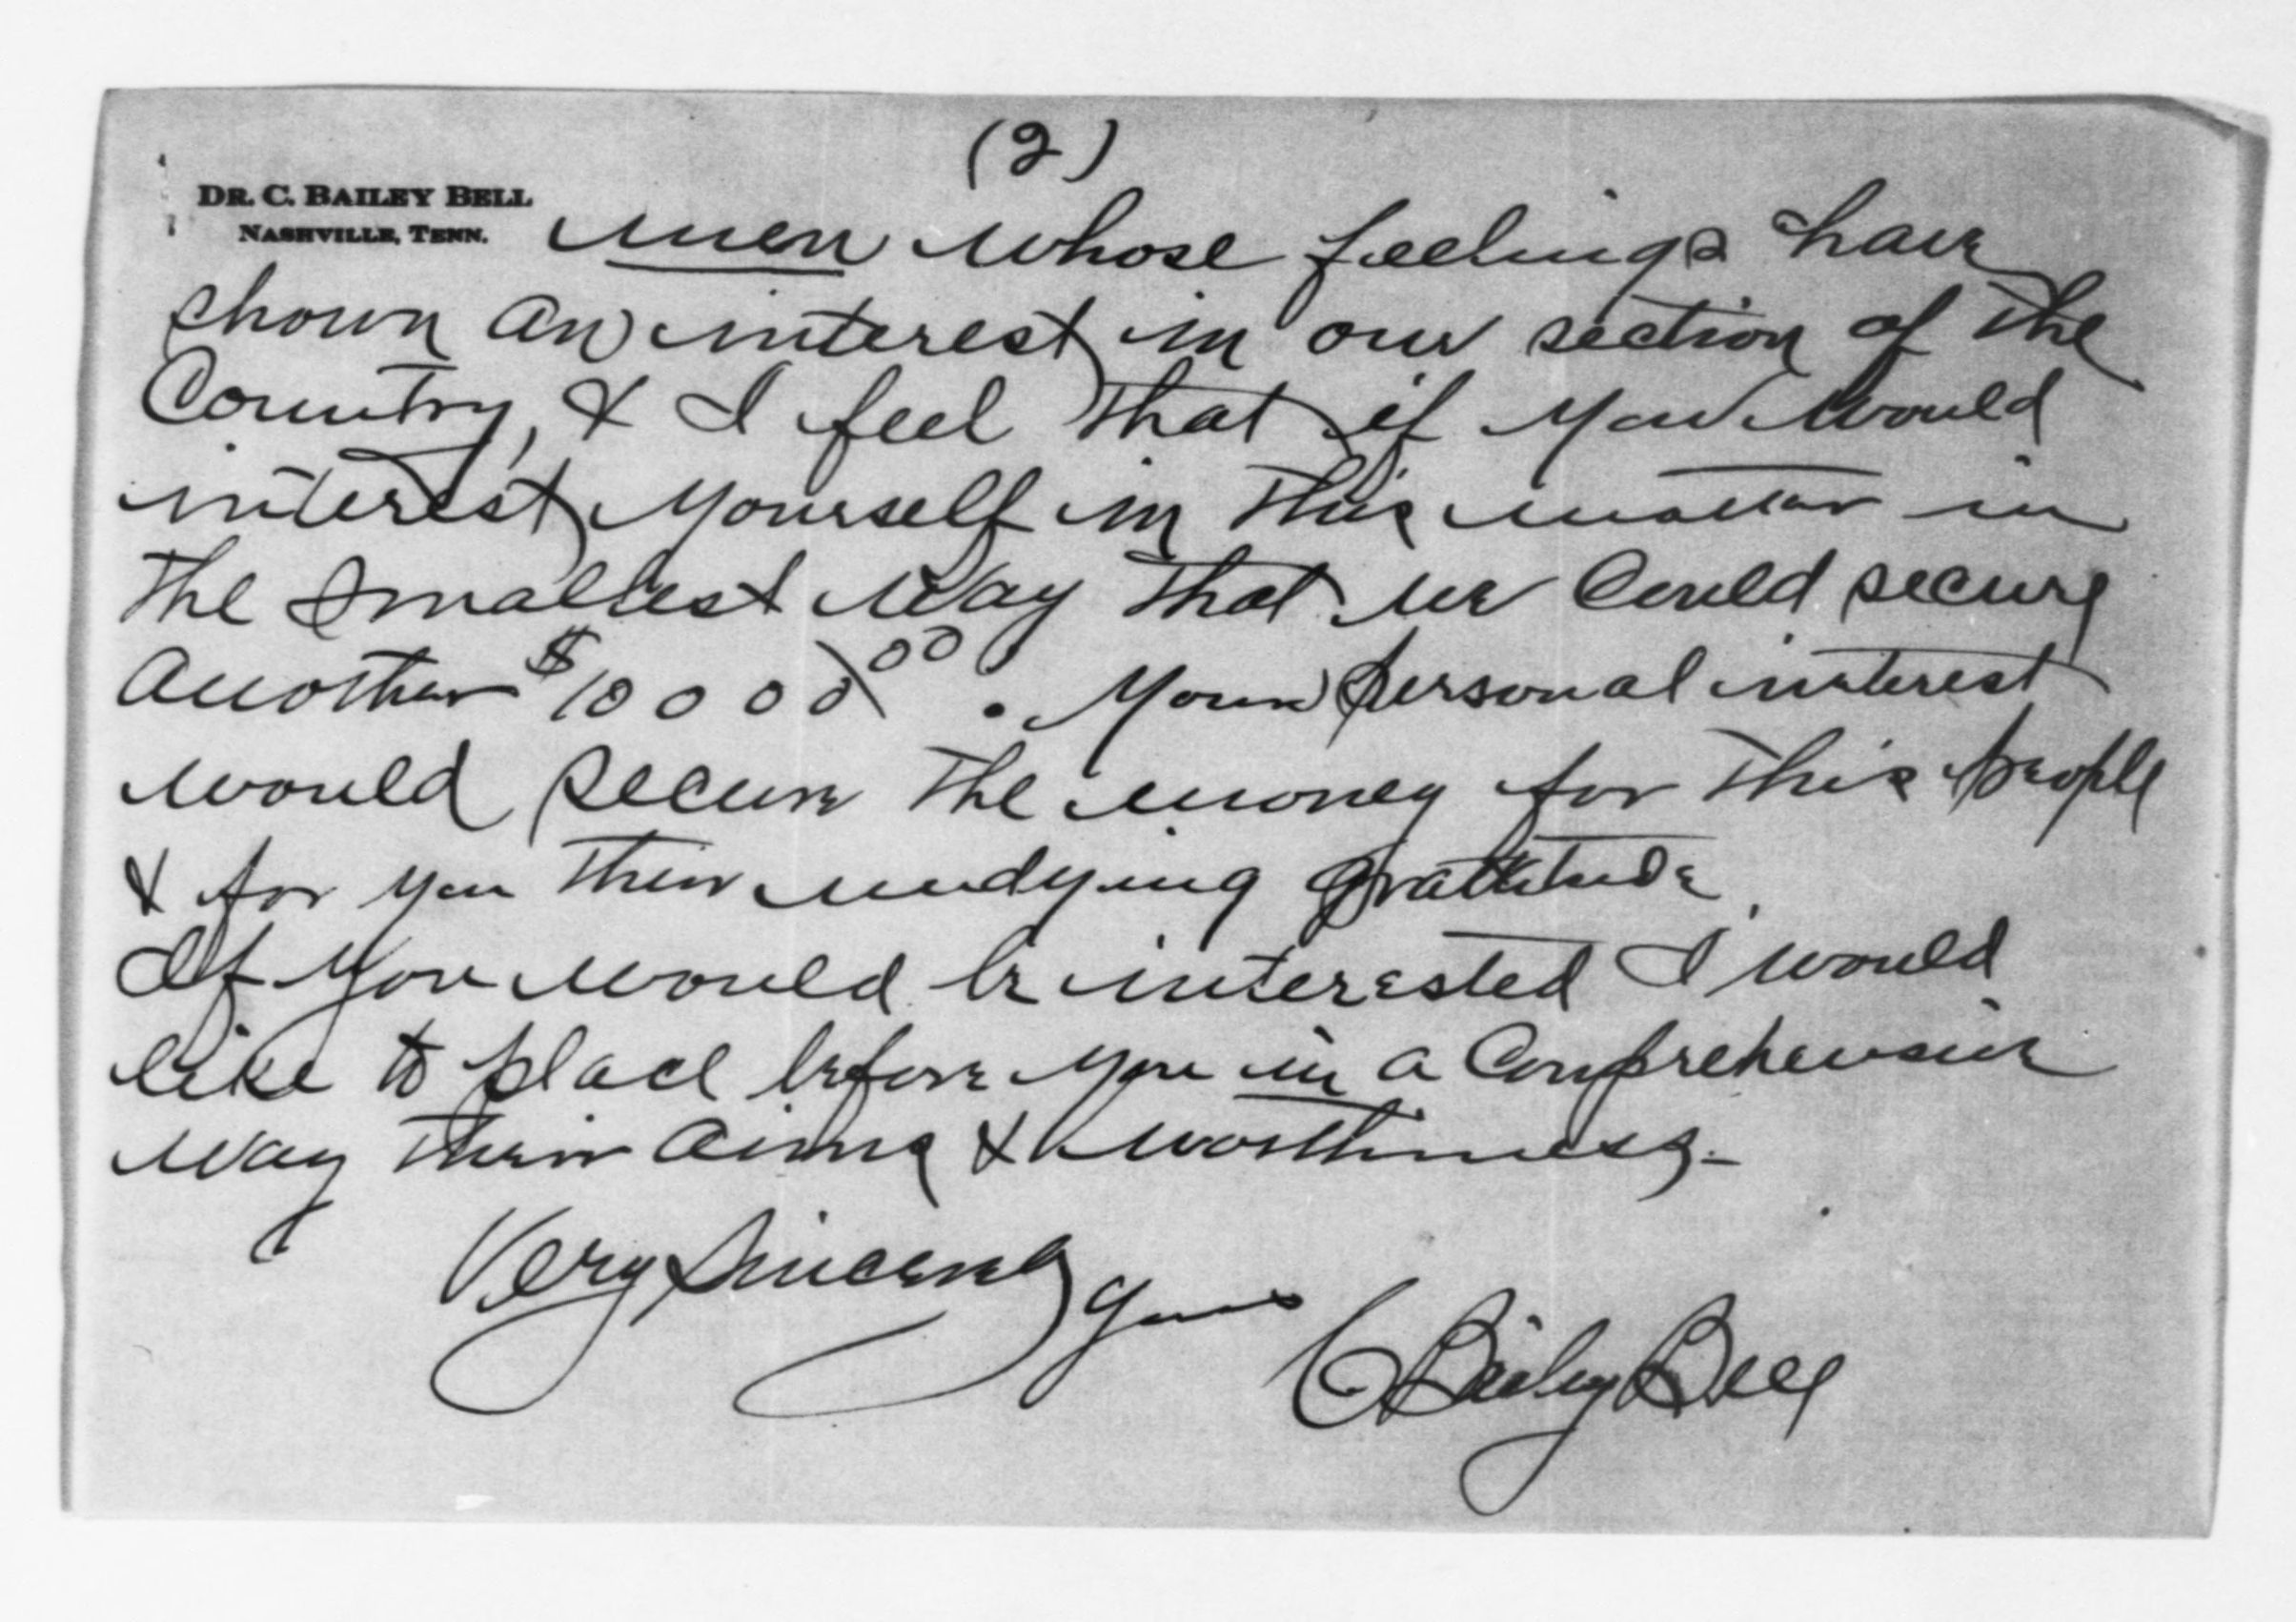 (2)
DR. C. BAILEY BELL
NASHVILLE, TENN.
men whose feelings have
shown an interest in our section of the
Country, & I feel that if you would
interest yourself in this matter in
the smallest way that we could secure
another $10000 00. Your personal interest
would secure the money for this people
& for you their undying grattitude.
If you would be interested I would
like to place before you in a Comprehensive
way their aims & worthiness.-
Very Sincerely Yours
C Bailey Bell